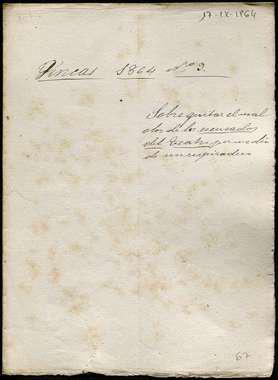 17-IX-1864
Fincas 1864 Nº 9.
Sobre quitar el mal
olor de los escusados
del Teatro por medio
de un respiradero
67